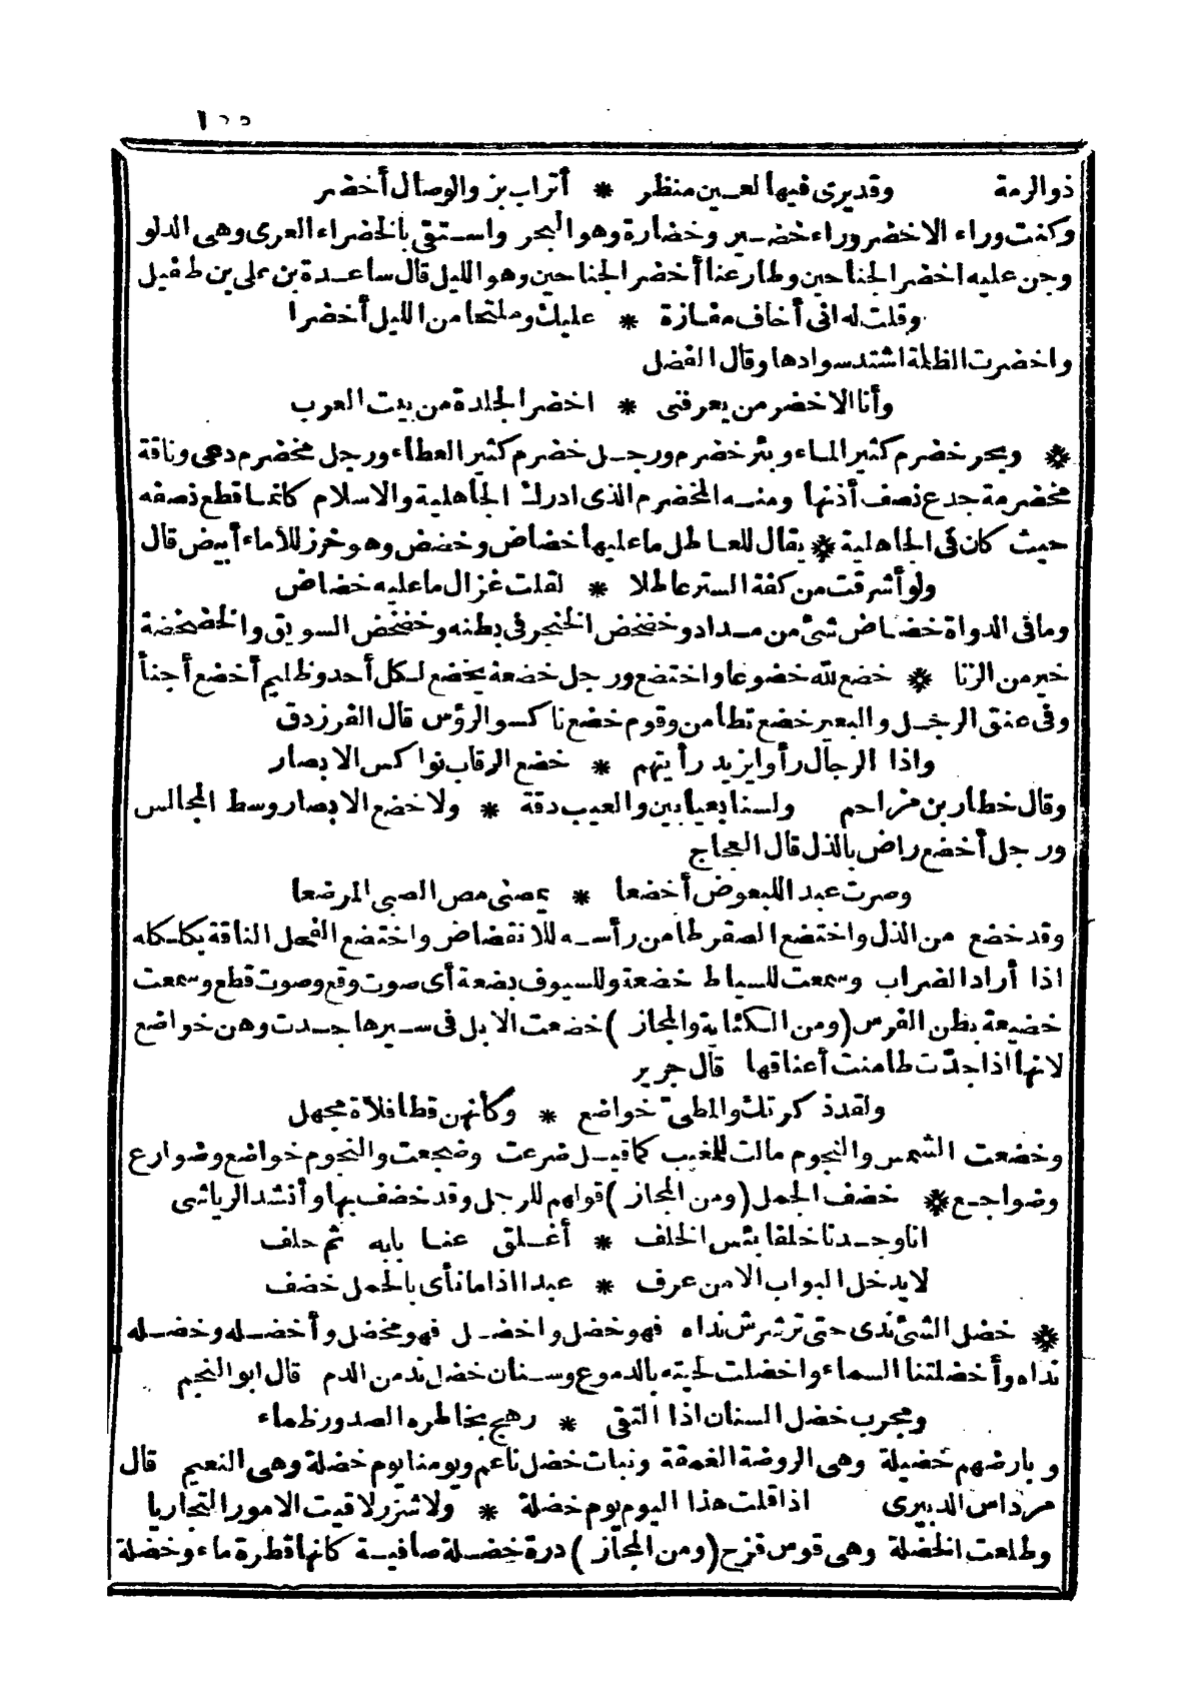 ١٥٥
ذو الرمة وقد يرى فيها لعين منظر * أتراب بز والوصال أخضر
وكنت وراء الاخضر وراء خضير وخضارة وهو البحر واستقى بالخضراء الفرى وهى الدلو
وجن عليه اخضر الجناحين وطار عنا أخضر الجناحين وهو الليل قال ساعدة بن على بن طفيل
وقلت له انى أخاف مفازة * عليك وملتحا من الليل أخضرا
واخضرت الظلمة اشتد سوادها وقال الفضل
وأنا الاخضر من يعرفنى * اخضر الجلدة من بيت العرب
* وبحر خضرم كثير الماء وبئر خضرم ورجل خضرم كثير العطاء ورجل مخضرم دعى وناقة
مخضرمة جدع نصف أذنها ومنه المخضرم الذى ادرك الجاهلية والاسلام كانما قطع نصفه
حيث كان فى الجاهلية * يقال للعاطل ما عليها خضاض وخضض وهو خرز للأماء أبيض قال
ولو أشرقت من كفة الستر عاطلا * لقلت غزال ما عليه خضاض
وما فى الدواة خضاض شئ من مداد وخضخض الخنجر فى بطنه وخضخض السويق والخضخضة
خير من الزنا * خضع لله خضوعا واختضع ورجل خضعة يخضع لكل أحد وظليم أخضع أجنأ
وفى عنق الرجل والبعير خضع تطامن وقوم خضع ناكسو الرؤس قال الفرزدق
واذا الرجال رأوا يزيد رأيتهم * خضع الرقاب نواكس الابصار
وقال خطار بن مزاحم ولسنا بعيابين والعيب دقة * ولا خضع الابصار وسط المجالس
ورجل أخضع راض بالذل قال العجاج
وصرت عبد اللبعوض أخضعا * يمصنى مص الصبى المرضعا
وقد خضع من الذل واختضع الصقر طامن رأسه للانقضاض واختضع الفحل الناقة بكلكله
اذا أراد الضراب وسمعت للسياط خضعة وللسيوف بضعة أى صوت وقع وصوت قطع وسمعت
خضيعة بطن الفرس (ومن الكناية والمجاز) خضعت الابل فى سيرها جدت وهن خواضع
لانها اذا جدّت طامنت أعناقها قال جرير
ولقد ذكرتك والمطىّ خواضع * وكأنهن قطا فلاة مجهل
وخضعت الشمس والنجوم مالت للمغيب كما قيل ضرعت وضجعت والنجوم خواضع وضوارع
وضواجع * خضف الجمل (ومن المجاز) قولهم للرجل وقد خضف بها وأنشد الرياشى
انا وجدنا خلفا بئس الخلف * أغلق عنا بابه ثم حلف
لا يدخل البواب الا من عرف * عبدا اذا ما نأى بالحمل خضف
* خضل الشئ ندى حتى ترشرش نداه فهو خضل واخضل فهو مخضل وأخضله وخضله
نداه وأخضلتنا السماء واخضلت لحيته بالدموع وسنان خضل ند من الدم قال ابو النجيم
ومجرب خضل السنان اذا التقى * رهج بخاطره الصدور ظماء
وبارضهم خضيلة وهى الروضة الغمقة ونبات خضل ناعم ويومنا يوم خضلة وهى النعيم قال
مرداس الدبيرى اذا قلت هذا اليوم يوم خضلة * ولا شزر لاقيت الامور التجاريا
وطلعت الخضلة وهى قوس قزح (ومن المجاز) درة خضلة صافية كانها قطرة ماء وخضلة